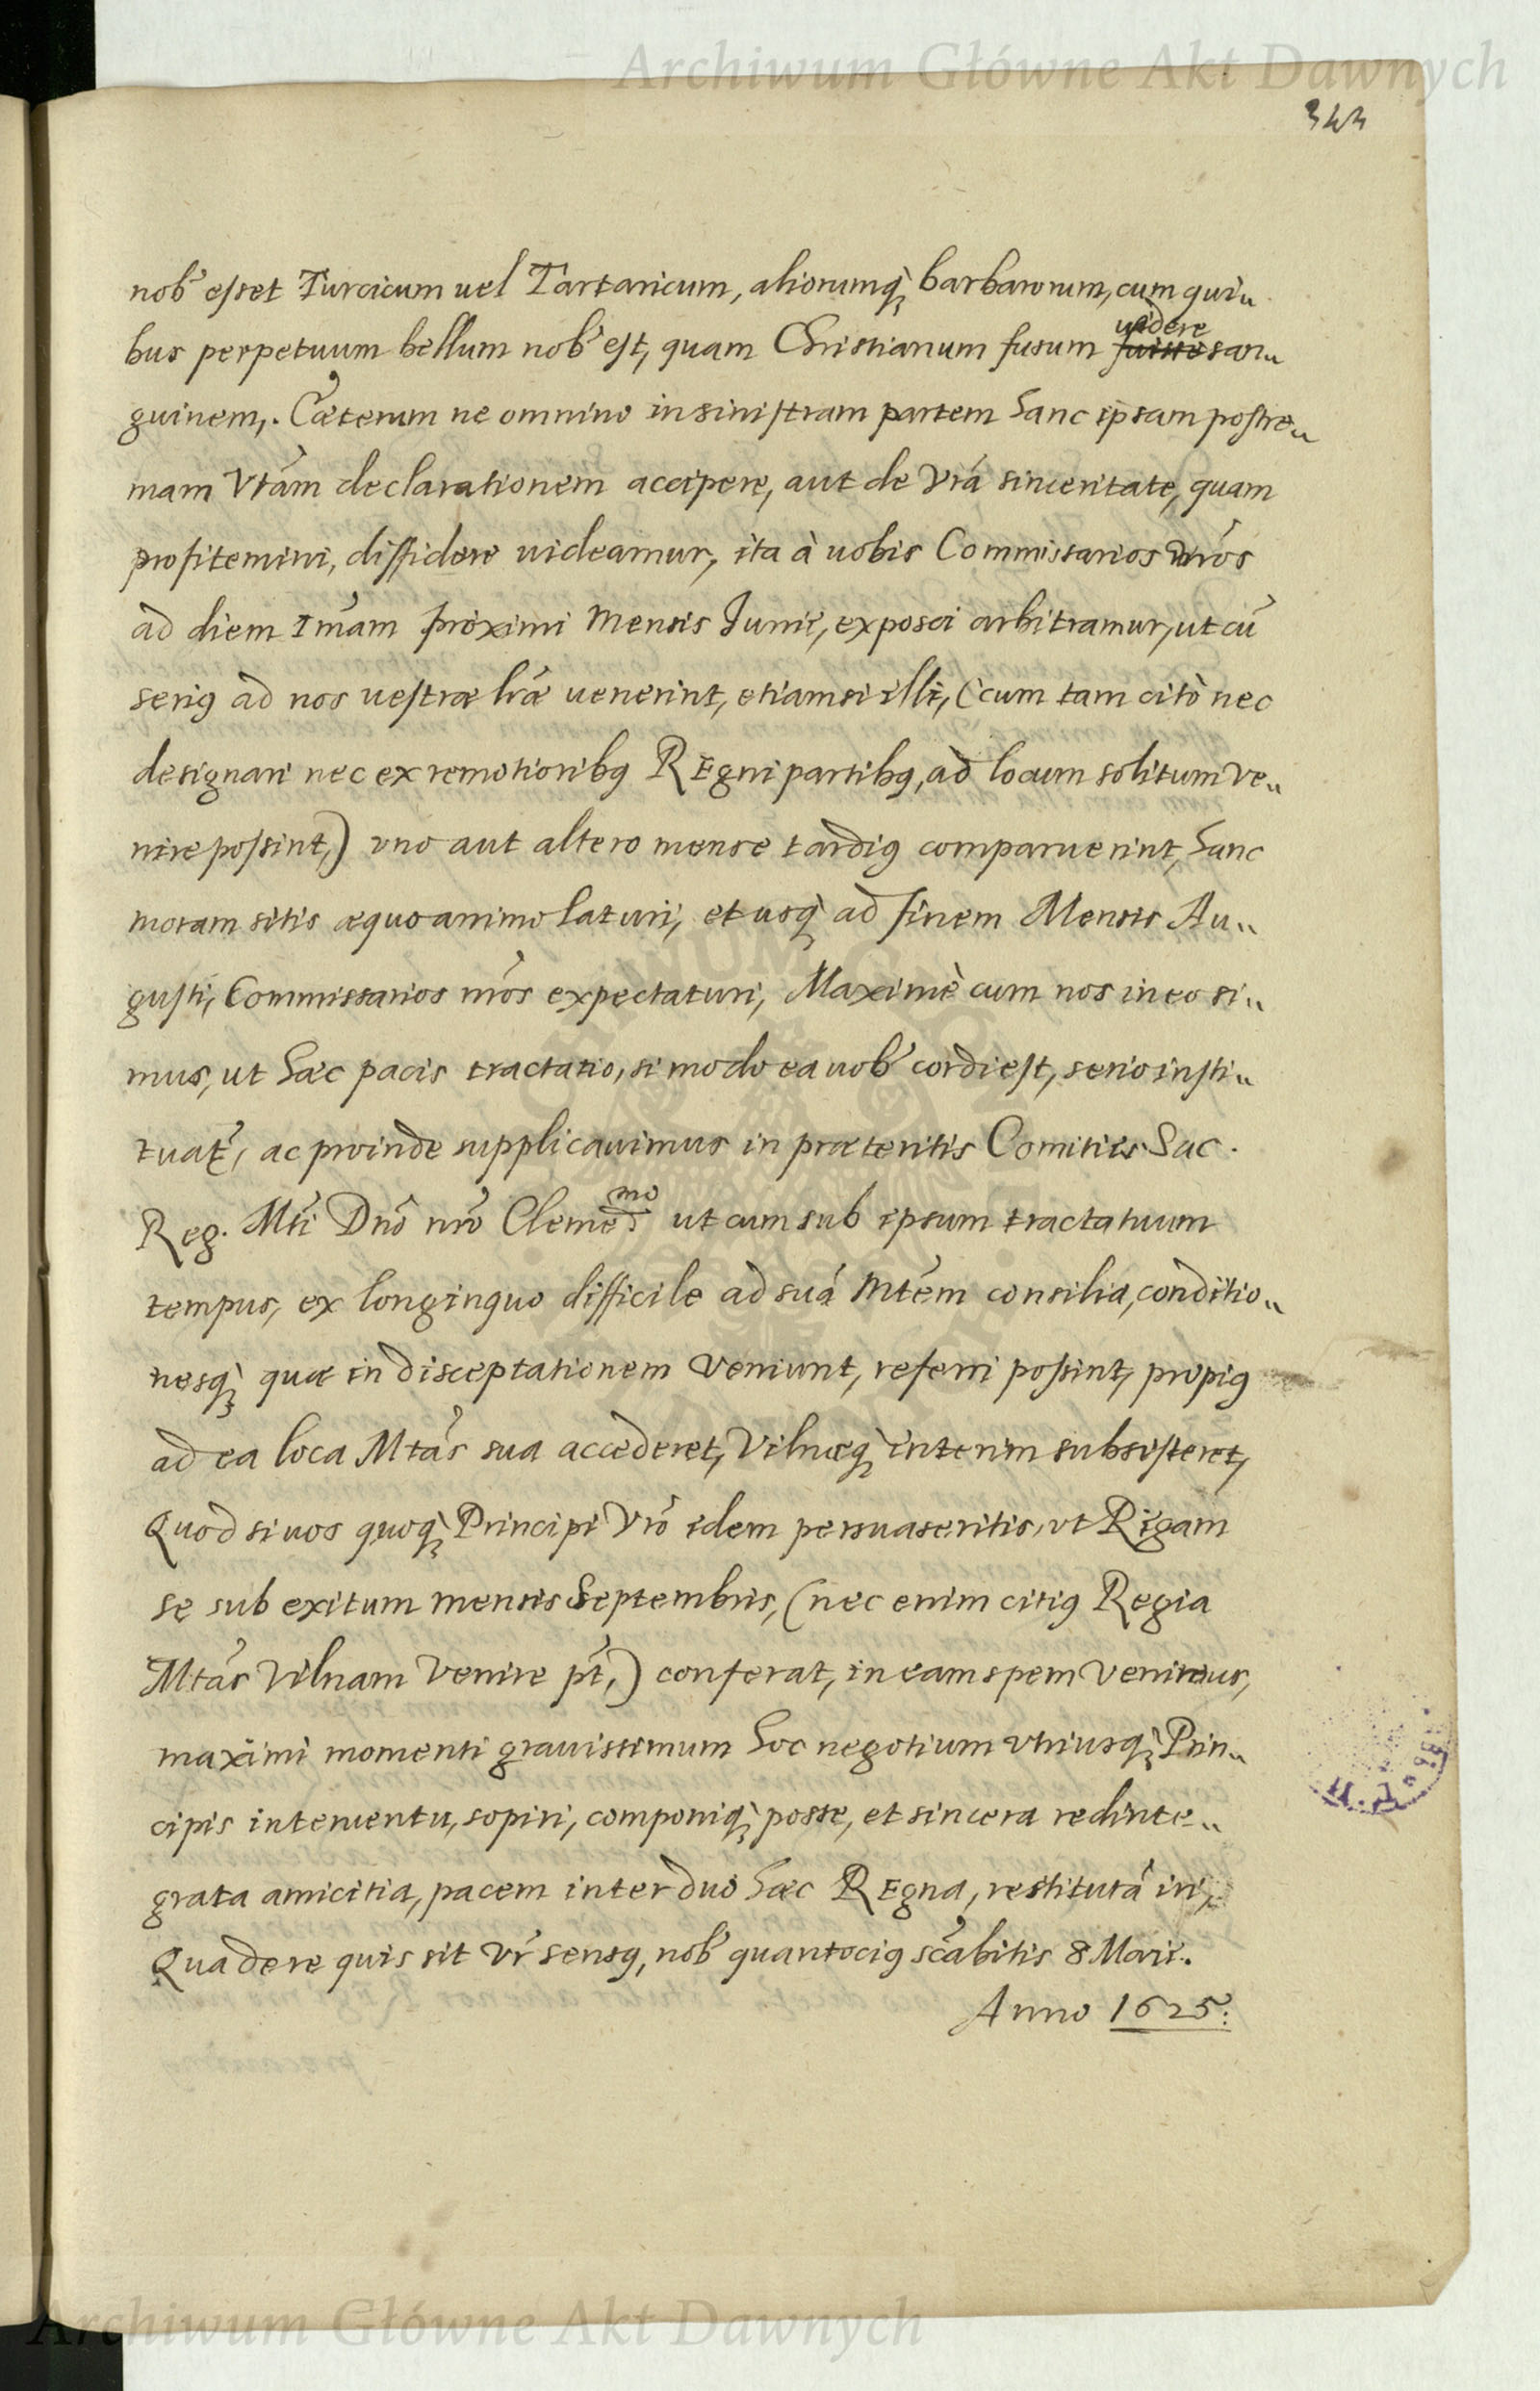 Archiwum Główne Akt Dawnych
343
nob' esset Turcicum uel Tartaricum, aliorumq; barbarorum, cum qui„
bus perpetuum bellum nob' est, quam Christianum fusum fuisse uidere san„
guinem,. Cæterum ne omnino in sinistram partem hanc ipsam postre„
mam Vrãm declarationem accipere, aut de Vrã sinceritate, quam
profitemini, diffidere uideamur, ita à uobis Commissarios nrõs
ad diem Imam proximi Mensis Junii, exposci arbitramur, ut cũ
serius ad nos uestræ lræ uenerint, etiamsi illi, (cum tam citò nec
designari nec ex remotioribus REgni partibus, ad locum solitum ve„
nire possint,) vno aut altero mense tardius comparuerint, hanc
moram sitis æquo animo laturi, et usq; ad finem Mensis Au„
gusti, Commissarios nrõs expectaturi, Maximè cum nos in eo si„
mus, ut hæc pacis tractatio, si modo ea uob' cordi est, serio insti„
tuat', ac proinde supplicauimus in præteritis Comitiis Sac.
Reg. Mti Dnõ nrõ Cleme͠mo ut cum sub ipsum tractatuum
tempus, ex longinquo difficile ad suã Mtẽm consilia, conditio„
nesq; quæ in disceptationem veniunt, referri possint, propius
ad ea loca Mtãs sua accederet, Vilnæq; interim subsisteret,
Quod si uos quoq; Principi Vrõ idem persuaseritis, vt Rigam
se sub exitum mensis Septembris, (nec enim citius Regia
Mtãs Vilnam venire põt,) conferat, in eam spem venimus,
maximi momenti grauissimum hoc negotium vtriusq; Prin„
cipis interuentu, sopiri, componiq; posse, et sincera redinte„
grata amicitia, pacem inter duo hæc REgna, restitutã iri,
Qua de re quis sit Vr̃ sensus, nob' quantocius scr̃abitis 8 Maii.
Anno 1625:
Archiwum Główne Akt Dawnych